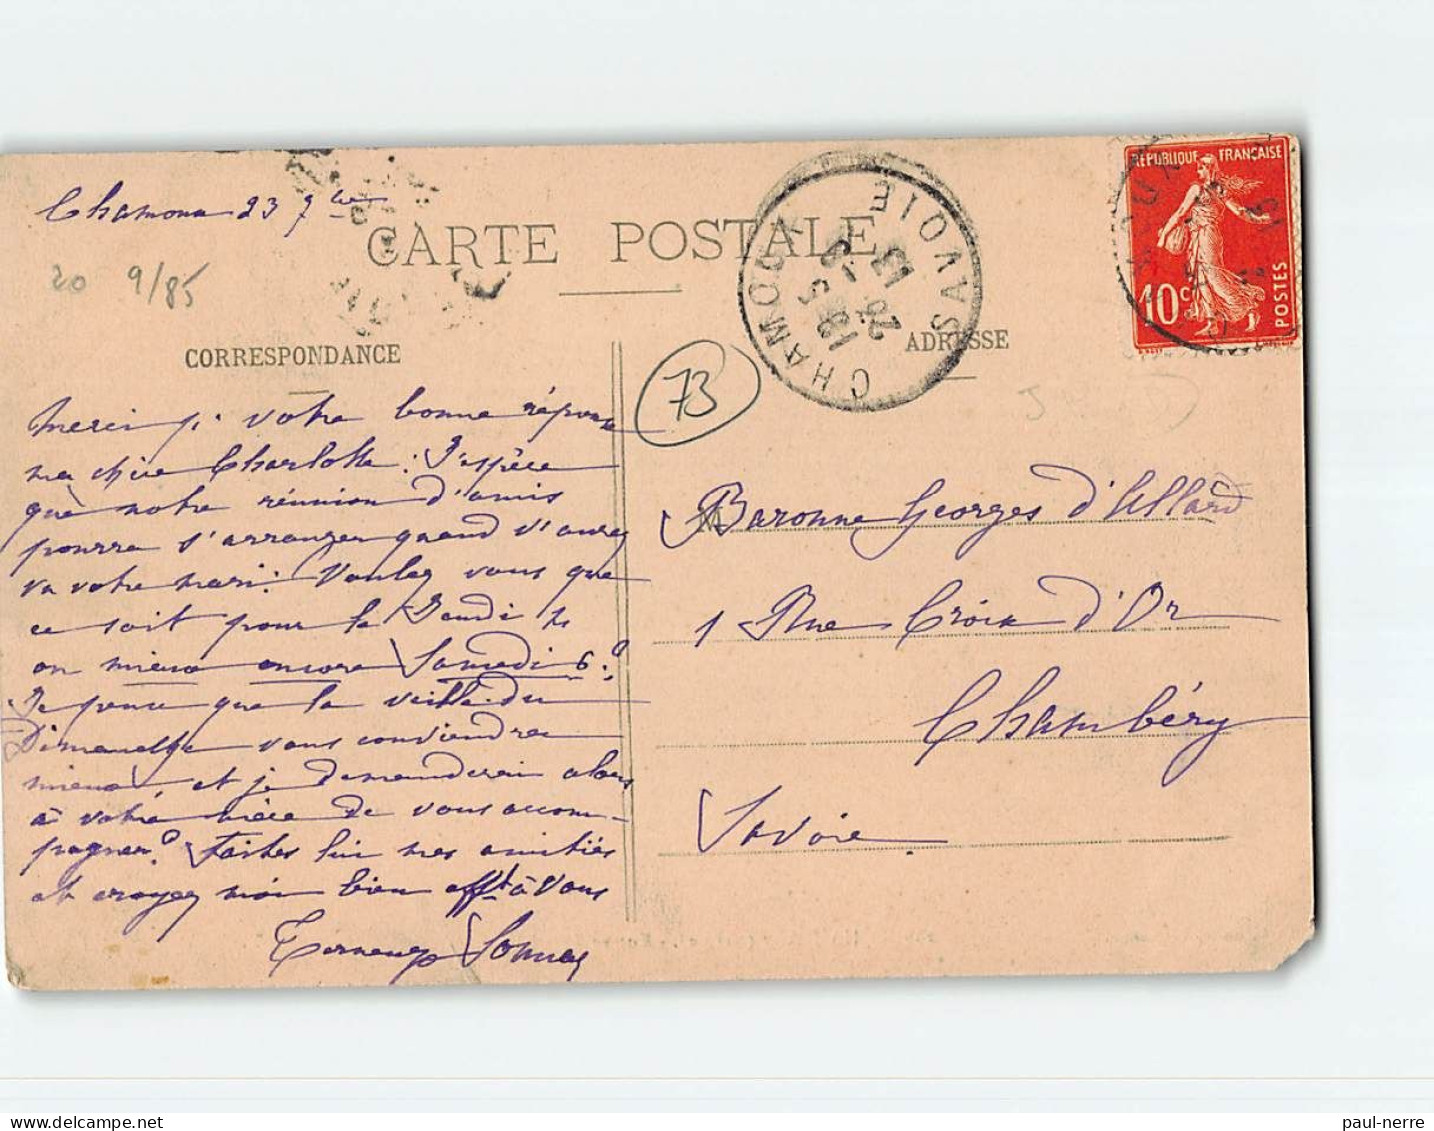 Chamoux 23 7bre
CARTE POSTALE
20 9/85
CORRESPONDANCE
ADRESSE
CHAMOUX
SAVOIE
73
RÉPUBLIQUE FRANÇAISE
10c
POSTES
Merci pr votre bonne réponse
ma chère Charlotte. J'espère
que notre réunion d'amis
pourra s'arranger quand v. aurez
vu votre mari. Voulez vous que
ce soit pour le Jeudi 4
ou mieux encore Samedi 6?
Je pense que la veille du
Dimanche vous conviendra
mieux et je demanderai alors
à votre nièce de vous accom-
pagner? Faites lui mes amitiés
et croyez moi bien afft à vous
M
Baronne Georges d'Allard
1 Rue Croix d'Or
Chambéry
Savoie
paul-nerre